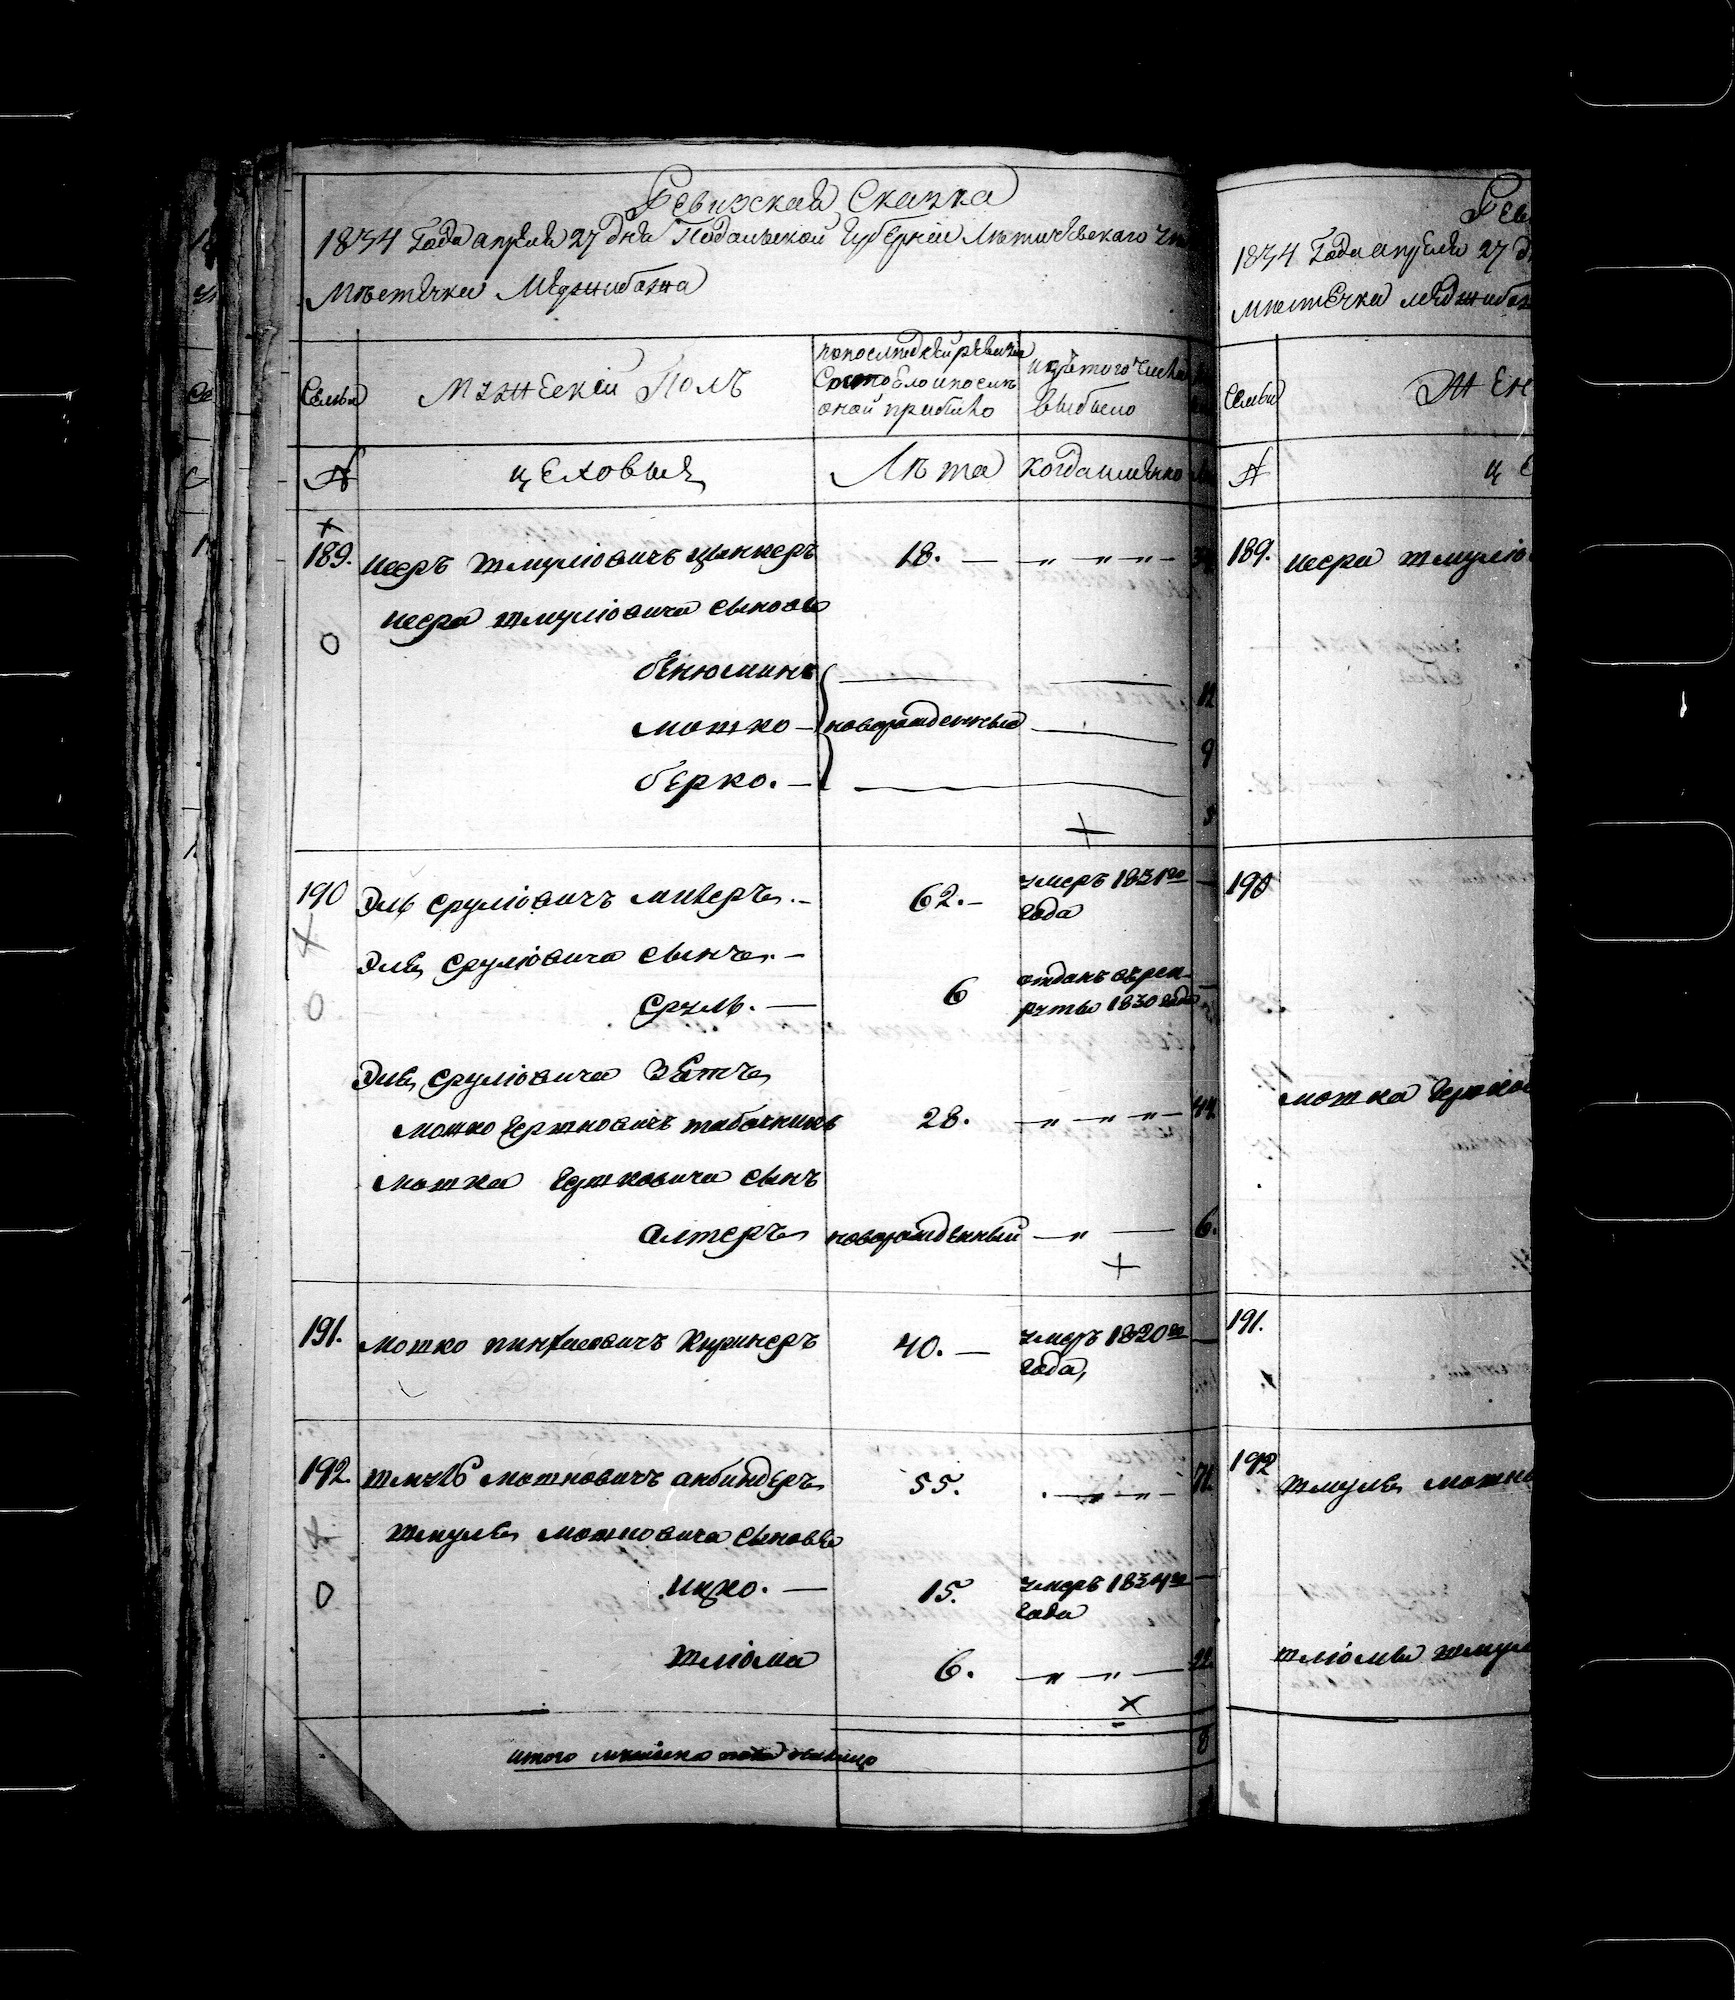 Ревизская Сказка
1834 Года апреля 27 дня Подольской Губернии Летичевского
Местечка Меджибожа
Семьи
Мужеский Полъ
по последней ревизии
Состояло и после
оной прибыло
изъ того числа
выбыло
№
цеховые
Лета
когда имянно
189.
Иееръ Шмулiовичъ
18. — „ „ „
Иеера Шмулiовича сыновья
Бенюминъ
12
Мошко — новорожденные
9
Берко. —
190
Эль Срулiовичъ
62. —
умеръ 1831го
года
Эля Срулiовича сынъ. —
Сруль. —
6
отданъ въ рек-
руты 1830 года
Эля Срулiовича Зять
Мошко Гершковичъ
28. — „ „ „ 44.
Мошка Гершковича сынъ
Алтеръ новорожденный — „ — 6.
191.
Мошко Пинхасовичъ Кушнеръ
40. —
умеръ 1820го
года
192.
Шмуль Мошковичъ
55. — „ „ 71.
Шмуля Мошковича сыновья
Ицко. —
15.
умеръ 1834го
года
Шлiома
6. — „ „ — 22.
итого мужеска пола налицо
8
Рев
1834 Года апреля 27 д
местечка Меджибож
Семьи
Жен
№
це
189. Иеера Шмулiо
190
Мошка Гершков
191.
192 Шмуля Мошко
Шлiомы Шмул